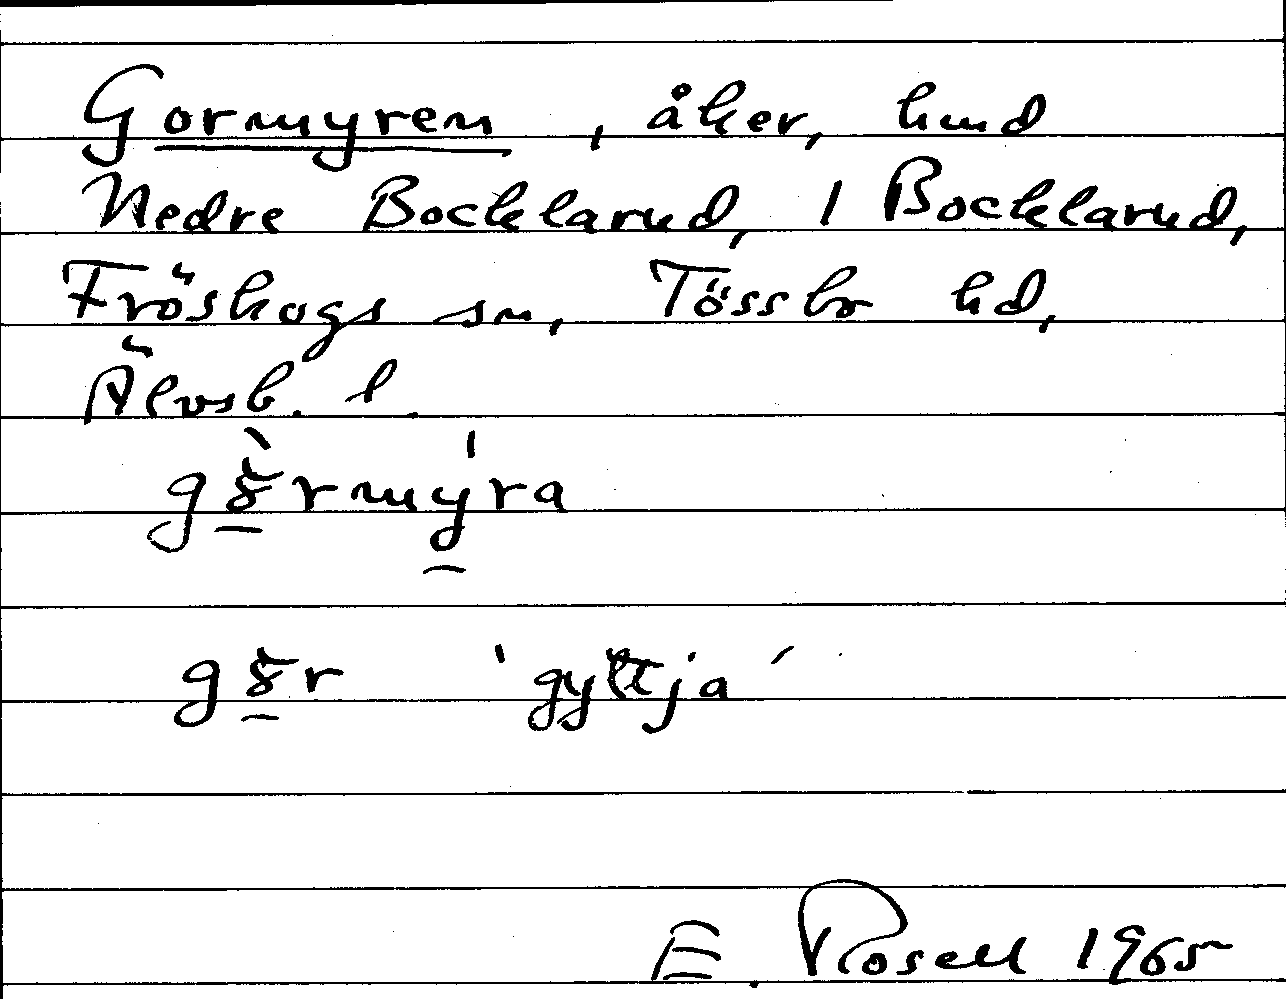 Gormyren, åker, hmd
Nedre Bocklarud, 1 Bocklarud,
Fröskogs sn, Tössbo hd,
Älvsb. l.
gàrmýra
gàr 'gyttja'
E. Rosell 1965